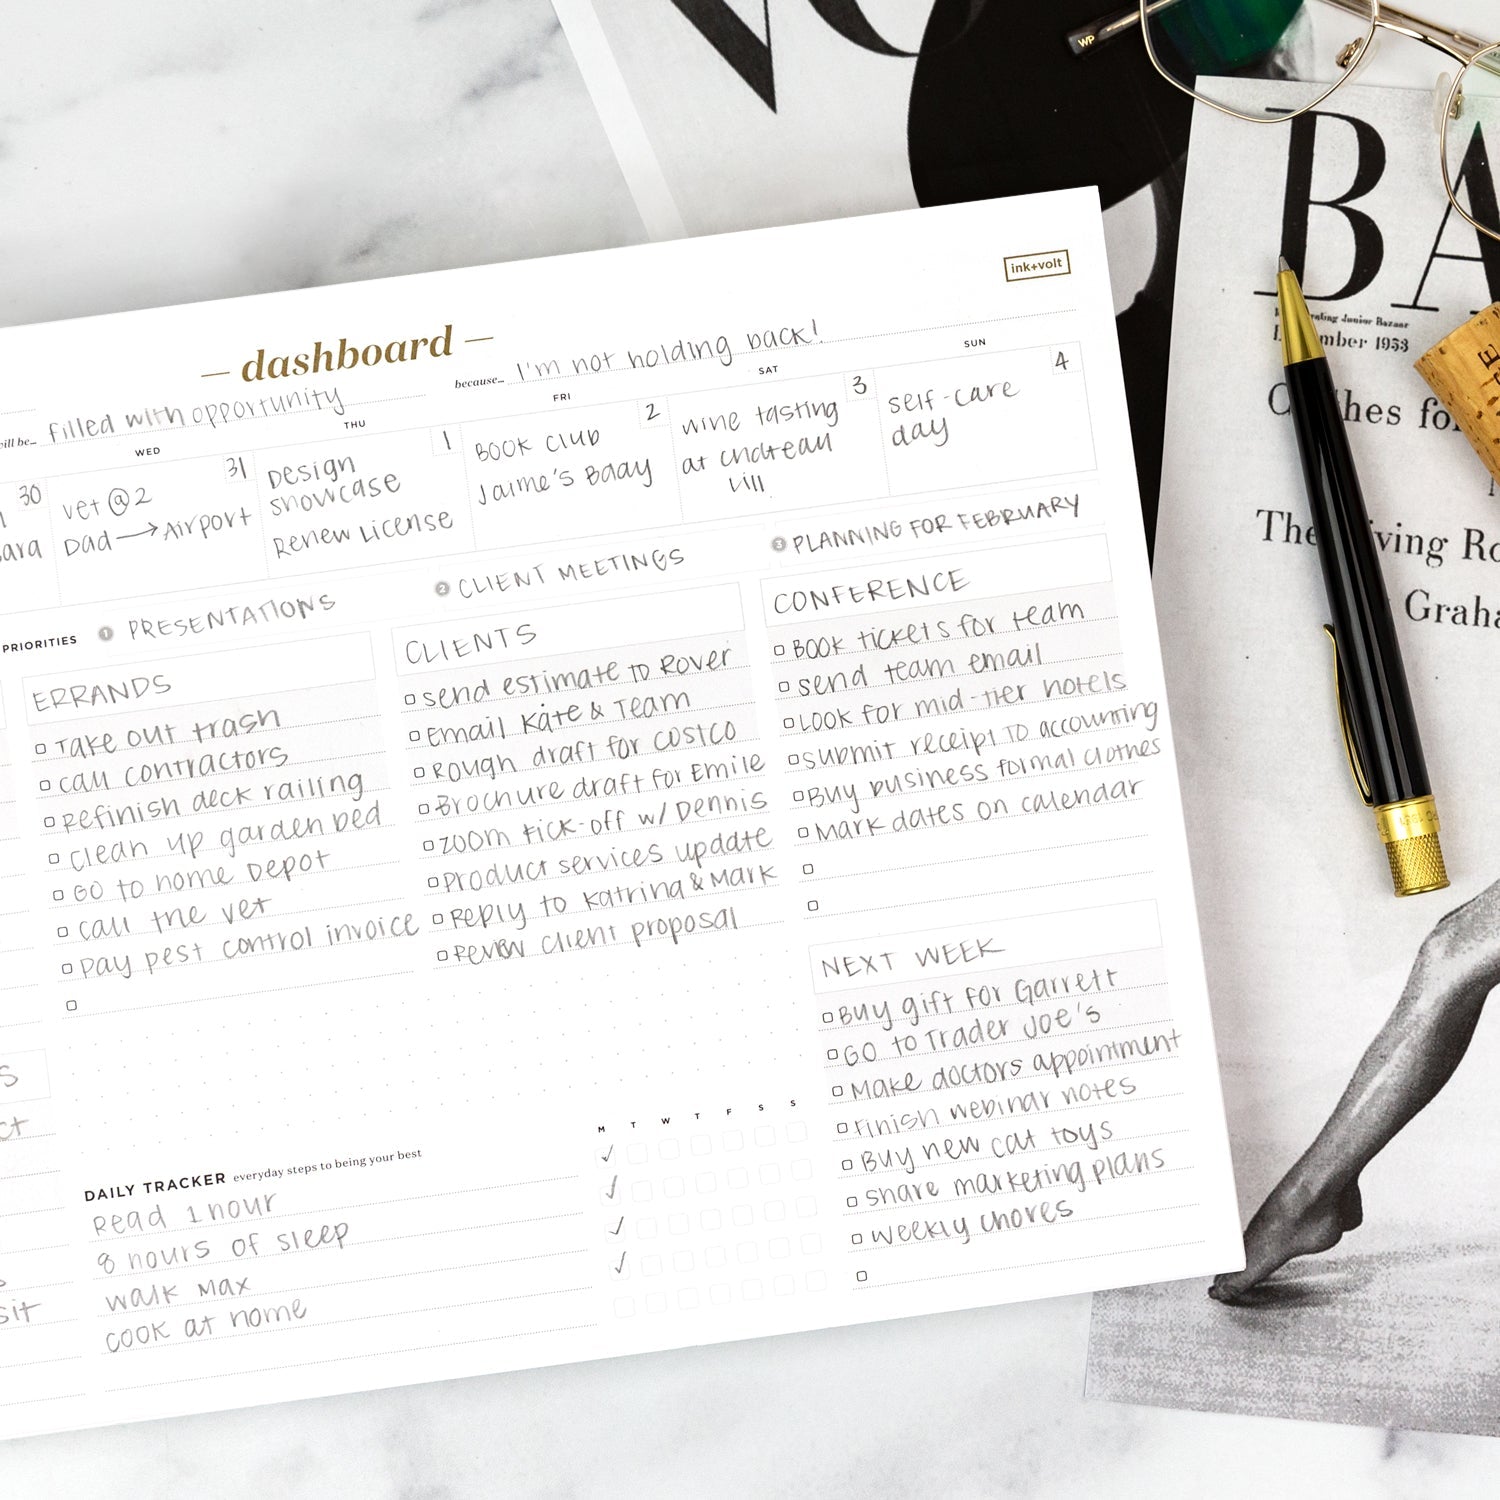 WP
ink+volt
— dashboard —
will be... filled with opportunity
because... I'm not holding back!
30
ara
WED 31
vet @ 2
Dad → Airport
THU 1
Design
showcase
Renew License
FRI 2
BOOK Club
Jaime's Baday
SAT 3
wine tasting
at chateau
vill
SUN 4
self-care
day
PRIORITIES
1 PRESENTATIONS
2 CLIENT MEETINGS
3 PLANNING FOR FEBRUARY
ERRANDS
Take out trash
call contractors
Refinish deck railing
clean up garden bed
GO to Home Depot
call the vet
pay pest control invoice
CLIENTS
send estimate to Rover
Email Kate & Team
Rough draft for costco
Brochure draft for Emile
zoom kick-off w/ Dennis
Product services update
Reply to Katrina & Mark
Review client proposal
CONFERENCE
BOOK tickets for team
send team email
LOOK for mid-tier hotels
submit receipt to accounting
Buy business formal clothes
Mark dates on calendar
NEXT WEEK
Buy gift for Garrett
GO to Trader Joe's
Make doctors appointment
Finish webinar notes
Buy new cat toys
share marketing plans
weekly chores
S
ct
sit
DAILY TRACKER everyday steps to being your best
M T W T F S S
Read 1 hour
8 hours of sleep
walk Max
cook at home
BA
Junior Bazaar
mber 1953
hes fo
The
ving Ro
Graha